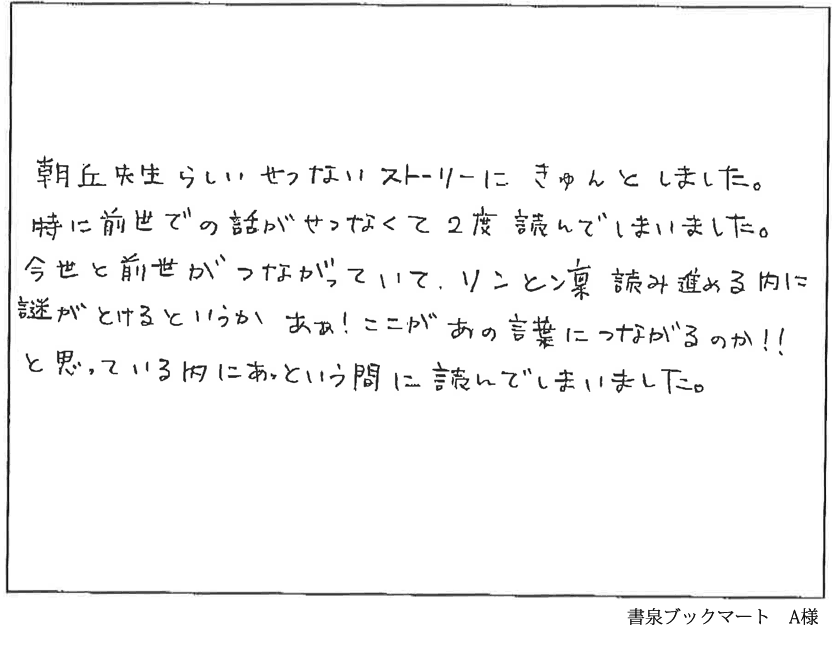 朝丘先生らしいせつないストーリーにきゅんとしました。
時に前世での話がせつなくて2度読んでしまいました。
今世と前世がつながっていて、リンと凜 読み進める内に
謎がとけるというか あぁ!ここがあの言葉につながるのか!!
と思っている内にあっという間に読んでしまいました。
書泉ブックマート A様